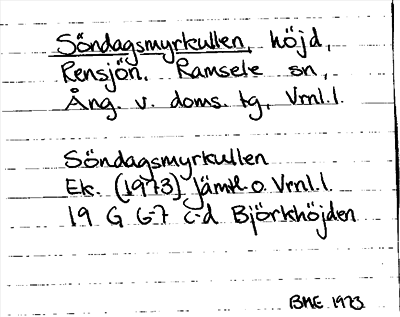 Söndagsmyrkullen, höjd,
Rensjön. Ramsele sn,
Ång. v. doms. tg, Vrnl.l.
Söndagsmyrkullen
Ek. (1973) Jämtl. o. Vrnl.l.
19 G 6-7 c-d Björkhöjden
BME 1973